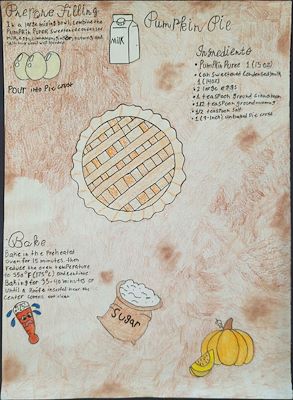 Prepare Filling
In a large mixing bowl, combine the
Pumpkin Puree, sweetened condensed
milk, eggs, cinnamon,
Pour into Pie crust
MILK
Pumpkin Pie
Ingredients
• Pumpkin Puree 1 (15 oz)
• can sweetened condensed milk
1 (14oz)
• 2 large eggs
• 1 teaspoon ground cinnamon
• 1/2 teaspoon ground nutmeg
• 1/2 teaspoon salt
• 1 (9-inch) unbaked pie crust
Bake
Bake in the Preheated
oven for 15 minutes, then
reduce the oven temperature
to 350°F (175°C) and continue
Baking for 35-40 minutes or
until a knife inserted near the
center comes out clean
Sugar